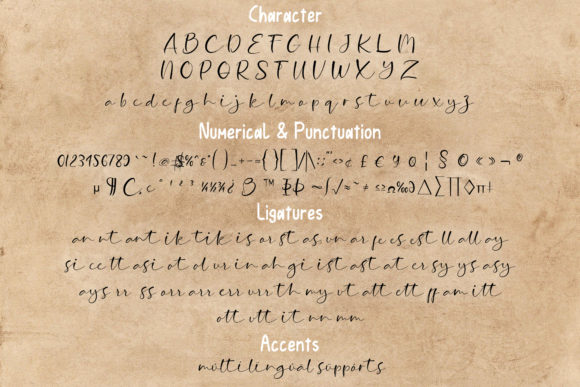 Character
A B C D E F G H I J K L M
N O P Q R S T U V W X Y Z
a b c d e f g h i j k l m n o p q r s t u v w x y z
Numerical & Punctuation
Ligatures
an nt ant ik tik is or st as un ar fe es est ll all ay
si ce tt asi ot ol ur in ah gi ist ast at er sy ys asy
ays rr ss orr arr err urr th my ut att ett ff am itt
ott utt it nn mm
Accents
multilingual supports